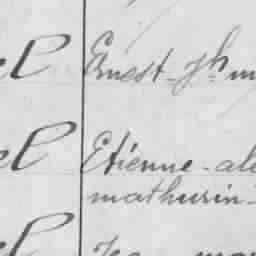 el Ernest Jh m
el Etienne ale
mathurin
el